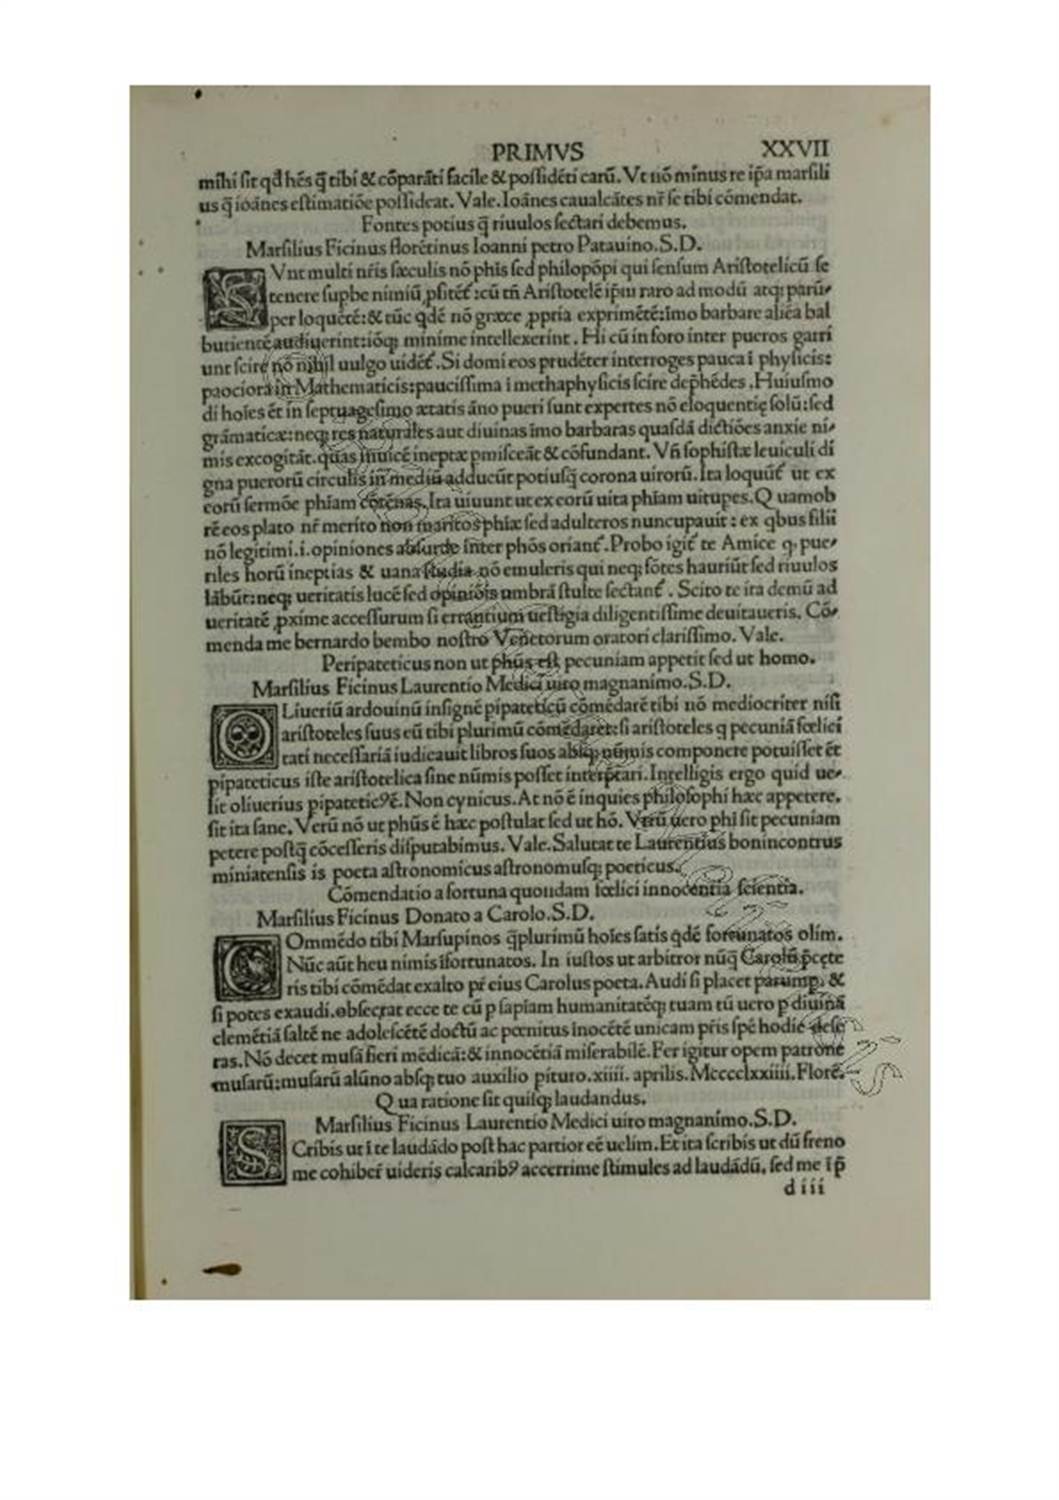 PRIMVS XXVII
mihi sit qđ hēs q̄ tibi & cōparāti facile & possidēti carū. Vt nō minus re ip̄a marsili
us q̄ ioānes estimatiōe possideat. Vale. Ioānes caualcātes nr̄ se tibi cōmendat.
Fontes potius q̄ riuulos sectari debemus.
Marsilius Ficinus florētinus Ioanni petro Patauino. S.D.
SVnt multi nr̄is sæculis nō phīs sed philopōpi qui sensum Aristotelicū se
tenere supbe nimiū ꝓfitēt́: cū tñ Aristotelē ip̄m raro ad modū atq; parū-
per loquētē: & tūc qdē nō græce ꝓpria exprimētē: imo barbare aliēa bal
butientē audiuerint: ioq; minime intellexerint. Hi cū in foro inter pueros garri
unt scire nō nihil uulgo uidēt́. Si domi eos prudēter interroges pauca ī physicis:
paociora in Mathematicis: paucissima ī methaphysicis scire dep̄hēdes. Huiusmo
di hoīes ēt in septuagesimo ætatis āno pueri sunt expertes nō eloquentię solū: sed
grāmaticæ: neq; res naturales aut diuinas īmo barbaras quasdā dictiōes anxie ni-
mis excogitāt. quas īnuicē ineptæ pmisceāt & cōfundant. Vñ sophistæ leuiculi di
gna puerorū circulis in mediū adducūt potiusq̄ corona uirorū. Ita loquūt́ ut ex
eorū sermōe phīam cōtēnas. Ita uiuunt ut ex eorū uita phīam uitupes. Quamob
rē eos plato nr̄ merito non maritos phīæ sed adulteros nuncupauit: ex qbus filii
nō legitimi .i. opiniones absurdę inter phōs oriant́. Probo igit́ te Amice q, pue-
riles horū ineptias & uana studia nō emuleris qui neq; fōtes hauriūt sed riuulos
lābūt: neq; ueritatis lucē sed opiniōis umbrā stulte sectant́. Scito te ita demū ad
ueritatē ꝓxime accessurum si errantium uestigia diligentissime deuitaueris. Cō-
menda me bernardo bembo nostro Venetorum oratori clarissimo. Vale.
Peripateticus non ut phūs est pecuniam appetit sed ut homo.
Marsilius Ficinus Laurentio Medici uiro magnanimo. S.D.
OLiueriū ardouinū insignē pipateticū cōmēdarē tibi nō mediocriter nisi
aristoteles suus eū tibi plurimū cōmēdaret: si aristoteles q pecuniā fœlici
tati necessariā iudicauit libros suos absq; nūmis componere potuisset ēt
pipateticus iste aristotelica sine nūmis posset interp̄tari. Intelligis ergo quid ue-
lit oliuerius pipatetic9 ē. Non cynicus. At nō ē inquies philosophi hæc appetere.
sit ita sane. Verū nō ut phūs ē hæc postulat sed ut hō. Verū uero phī sit pecuniam
petere postq̄ cōcesseris disputabimus. Vale. Salutat te Laurentius bonincontrus
miniatensis is poeta astronomicus astronomusq; poeticus.
Cōmendatio a fortuna quondam fœlici innocentia scientia.
Marsilius Ficinus Donato a Carolo. S.D.
COmmēdo tibi Marsupinos q̄plurimū hoīes satis qdē fortunatos olim.
Nūc aūt heu nimis īfortunatos. In iustos ut arbitror nūq̄ Carolū p̄cęte
ris tibi cōmēdat exalto pr̄ eius Carolus poeta. Audi si placet parump. &
si potes exaudi. obsecrat ecce te cū p sapīam humanitatēq; tuam tū uero p diuinā
clemētiā saltē ne adolescētē doctū ac pœnitus inocētē unicam pr̄is spē hodie dese
ras. Nō decet musā fieri mēdicā: & innocētiā miserabilē. Fer igitur opem patrone
musarū: musarū alūno absq; tuo auxilio pituro. xiiii. aprilis. Mcccclxxiiii. Florē.
Qua ratione sit quisq; laudandus.
Marsilius Ficinus Laurentio Medici uiro magnanimo. S.D.
SCribis ut ī te laudādo post hac partior eē uelim. Et ita scribis ut dū freno
me cohiber̄ uideris calcarib9 acerrime stimules ad laudādū, sed me īp̄
d iii